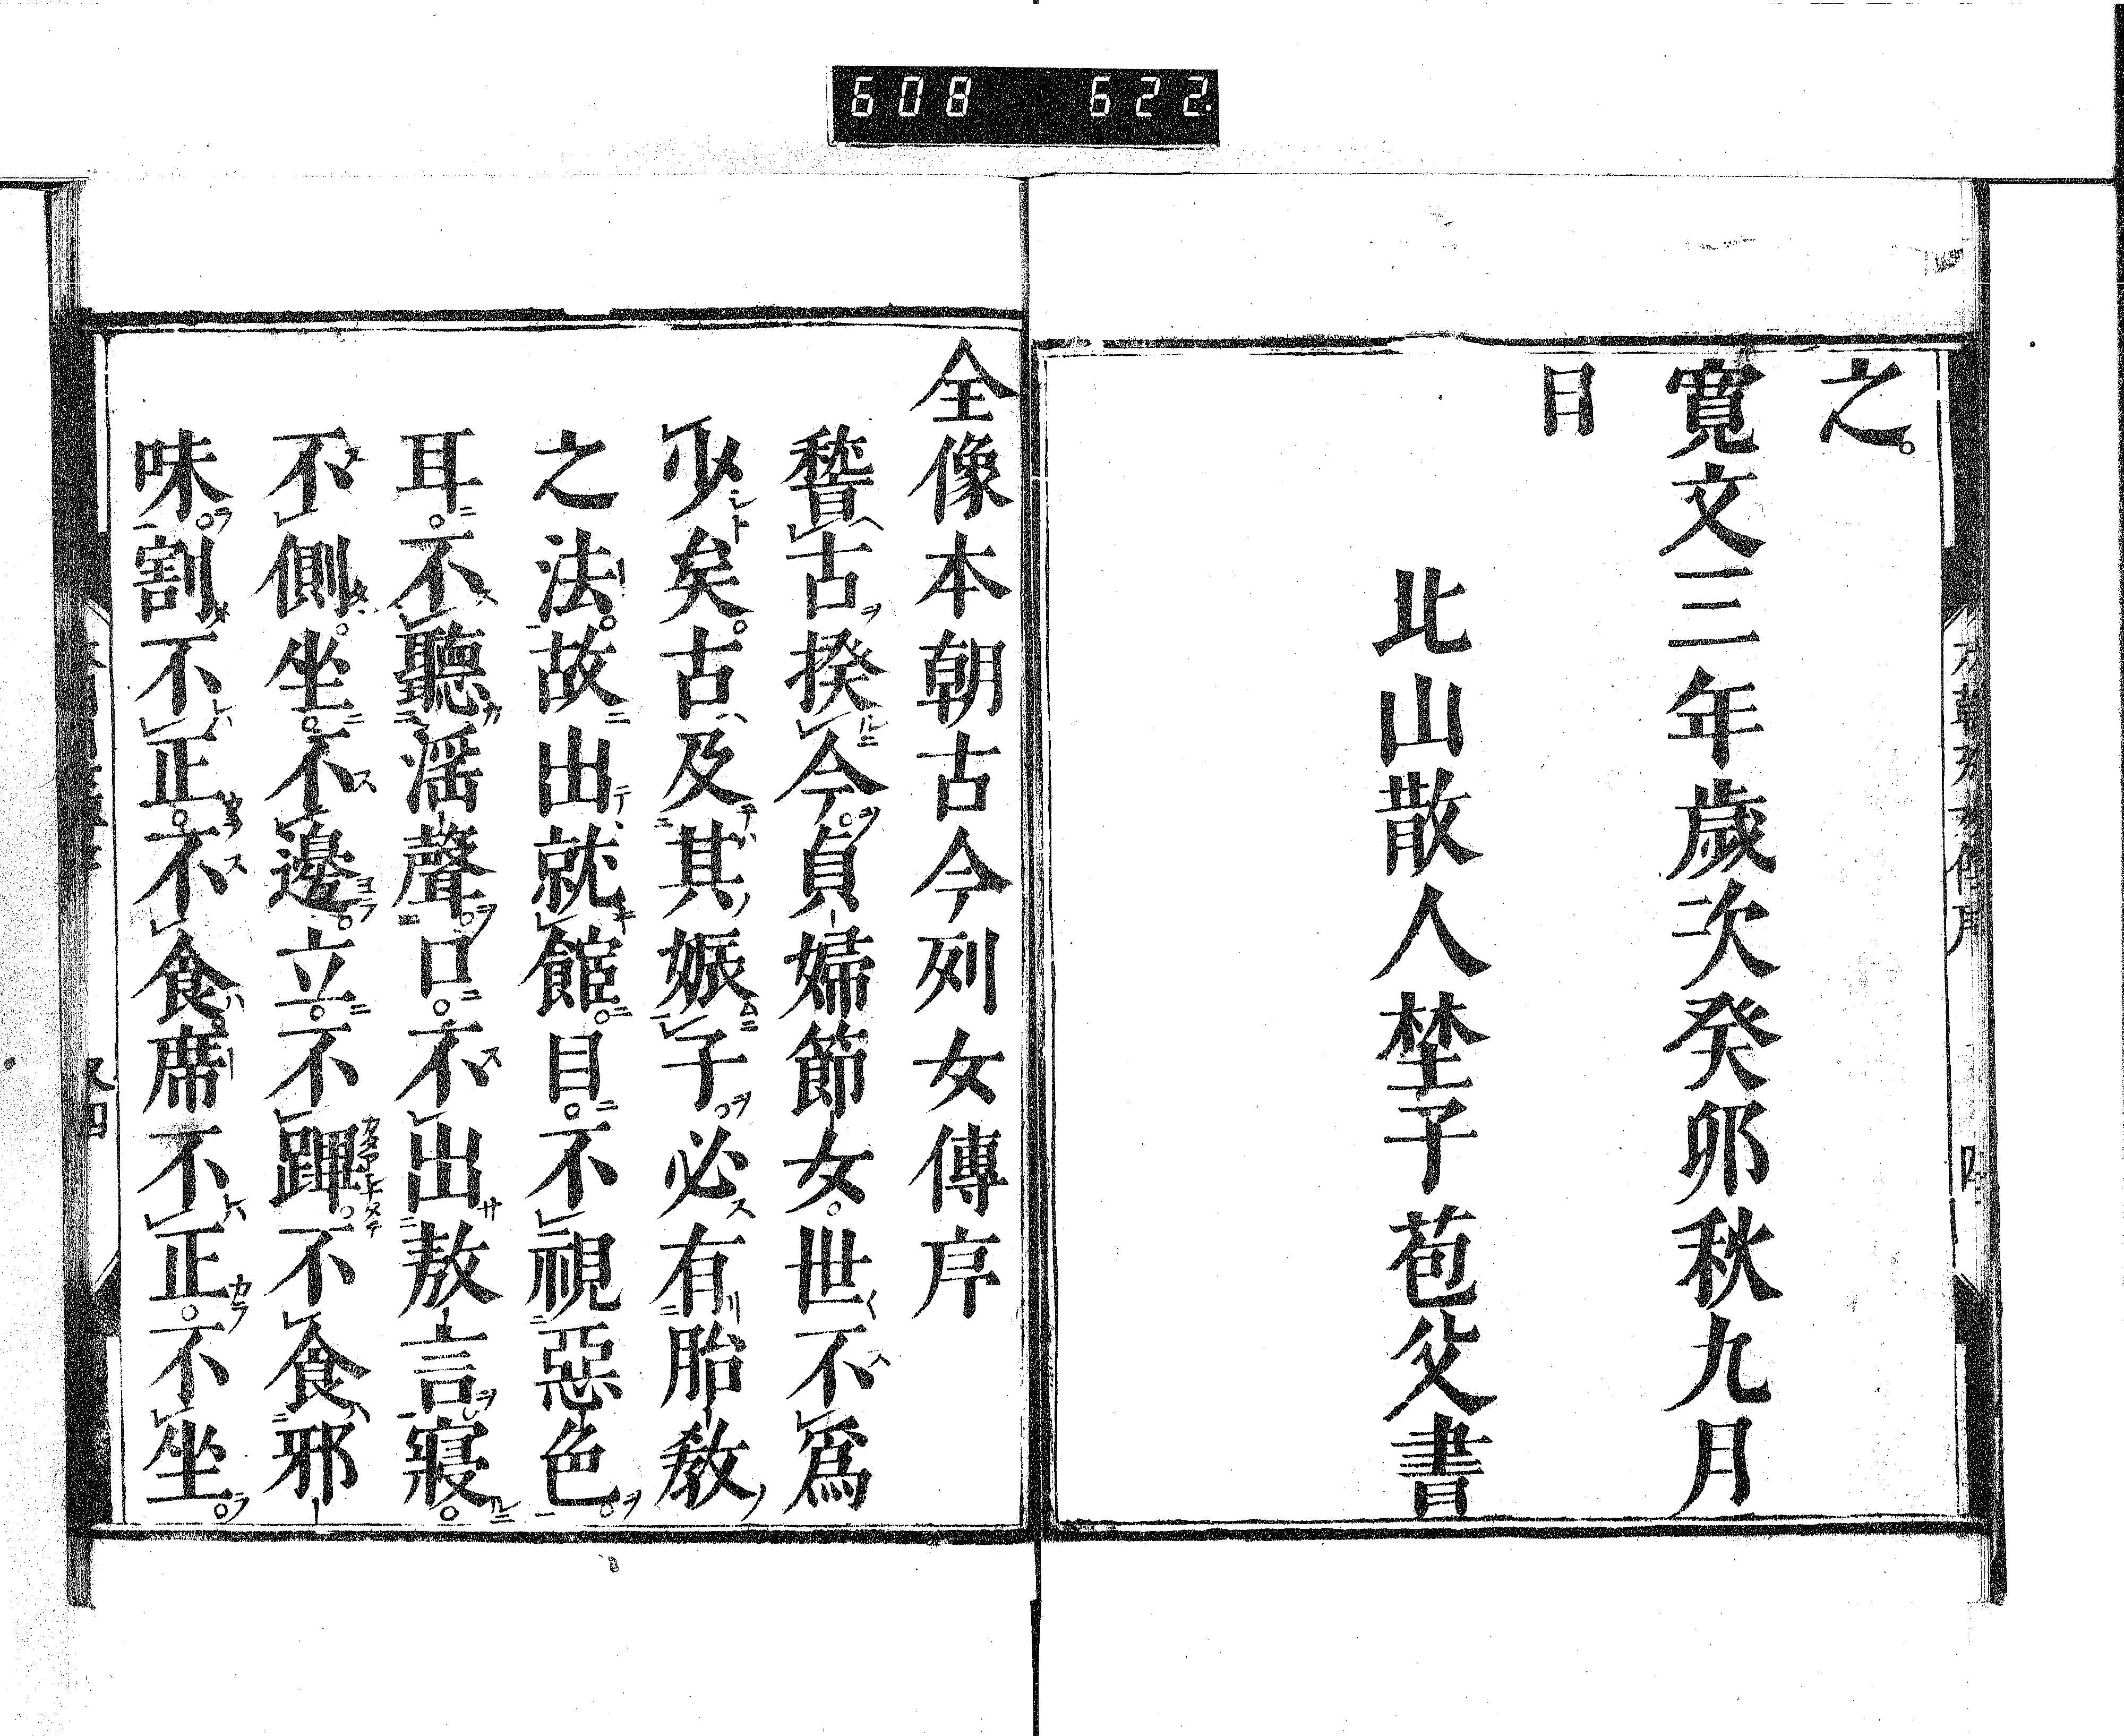 608 622
之。
寛文三年歳次癸卯秋九月
日
北山散人埜子苞父書
全像本朝古今列女傳序
稽古揆今。貞婦節女。世不爲
少矣。古及其娠子。必有胎敎
之法。故出就館。目。不視惡色。
耳。不聽淫聲。口。不出敖言。寢。
不側。坐。不邊。立。不蹕。不食邪
味。割不正。不食。席不正。不坐。